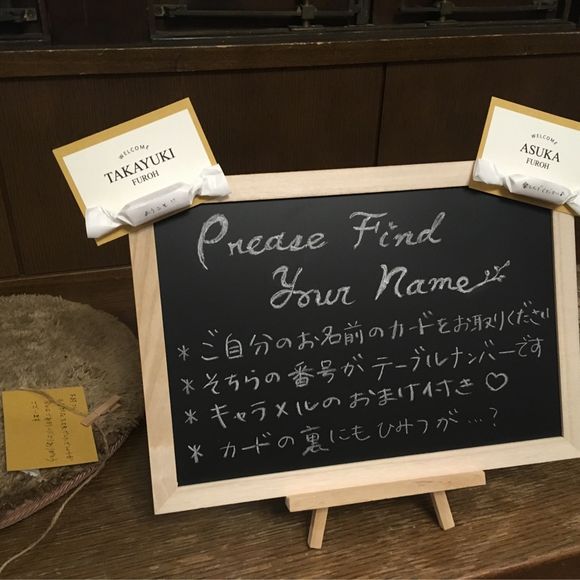 WELCOME
TAKAYUKI
FUROH
WELCOME
ASUKA
FUROH
Prease Find
Your Name
* ご自分のお名前のカードをお取りください
* そちらの番号がテーブルナンバーです
* キャラメルのおまけ付き♡
* カードの裏にもひみつが…?